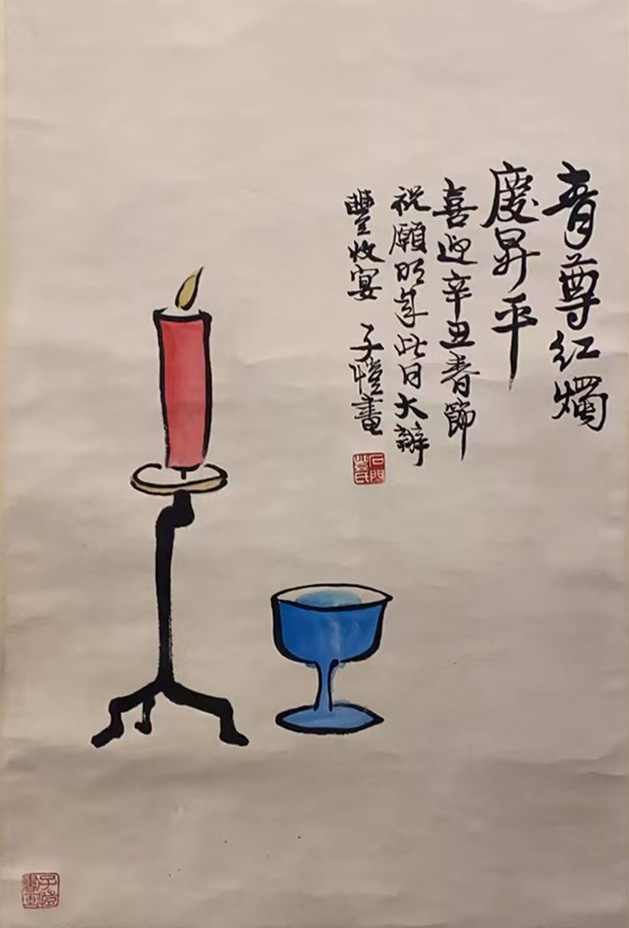 青尊紅燭
慶昇平
喜迎辛丑春節
祝願明年此日大辦
豐收宴 子愷畫
石門豐氏